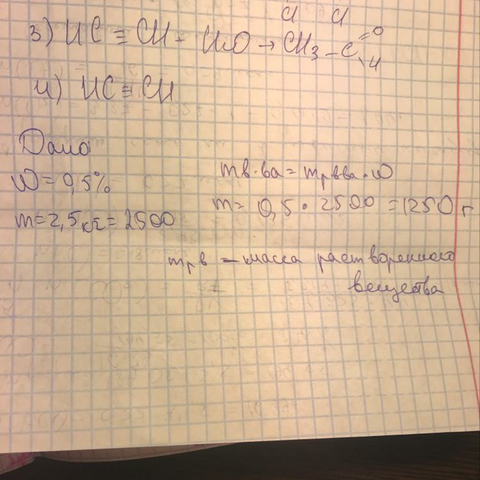 Cl Cl
3) HC ≡ CH - H₂O → CH3 - C =O \H
4) HC≡CH
Дано
W = 0,5%
m = 2,5 кг = 2500
mв-ва = mр-ва • ω
m = 0,5 • 2500 = 1250 г
mрв - масса растворенного
вещества